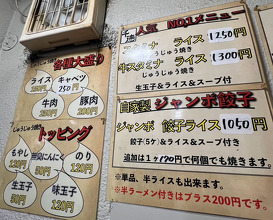 各種大盛り
じゅうじゅう焼き
ライス キャベツ
250円
牛肉 豚肉
250円 200円
じゅうじゅう焼き
トッピング
もやし 豆板にんにく のり
50円 120円
生玉子 味玉子
50円 120円
人気 NO.1メニュー
スタミナ ライス 1250円
じゅうじゅう焼
牛スタミナ ライス 1300円
じゅうじゅう焼
生玉子&ライス&スープ付き
自家製 ジャンボ餃子
ジャンボ 餃子ライス 1050円
餃子(5ケ)&ライス&スープ付
追加は1ヶ170円で何個でも焼きます。
※単品、半ライスも出来ます。
※半ラーメン付きはプラス200円です。